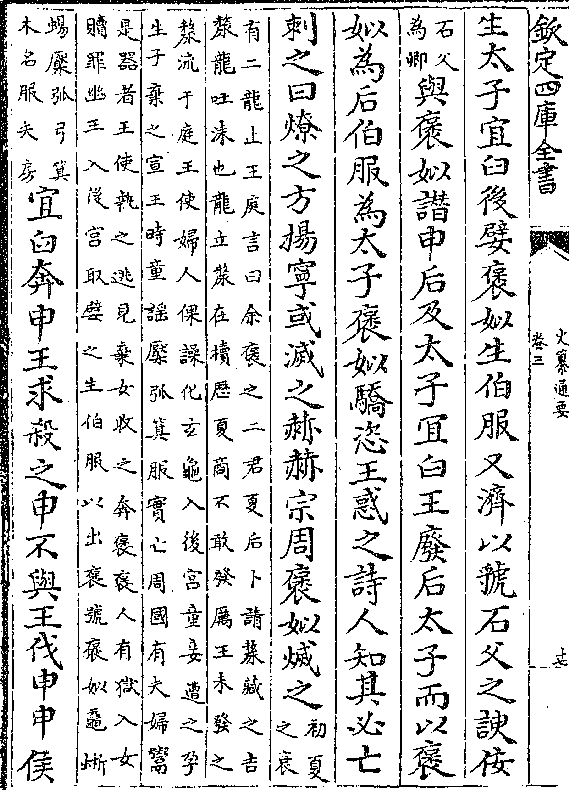 欽定四庫全書
史纂通要
卷三
生太子宜臼後嬖褒姒生伯服又濟以虢石父之諛佞
石父
為卿
與褒姒譖申后及太子宜臼王廢后太子而以褒
姒為后伯服為太子褒姒驕恣王惑之詩人知其必亡
刺之曰燎之方揚寧或滅之赫赫宗周褒姒烕之
初夏
之衰
有二龍止王庭言曰余褒之二君夏后卜請漦藏之吉
漦龍吐沫也龍立漦在櫝歴夏商不敢發厲王末發之
漦流于庭王使婦人倮譟化玄龜入後宮童妾遭之孕
生子棄之宣王時童謡檿弧箕服實亡周國有夫婦鬻
是器者王使執之逃見棄女收之奔褒褒人有獄入女
贖罪幽王入後宮取嬖之生伯服以出褒號褒姒龜蜥
蜴檿弧弓箕
木名服矢房
宜臼奔申王求殺之申不與王伐申申侯